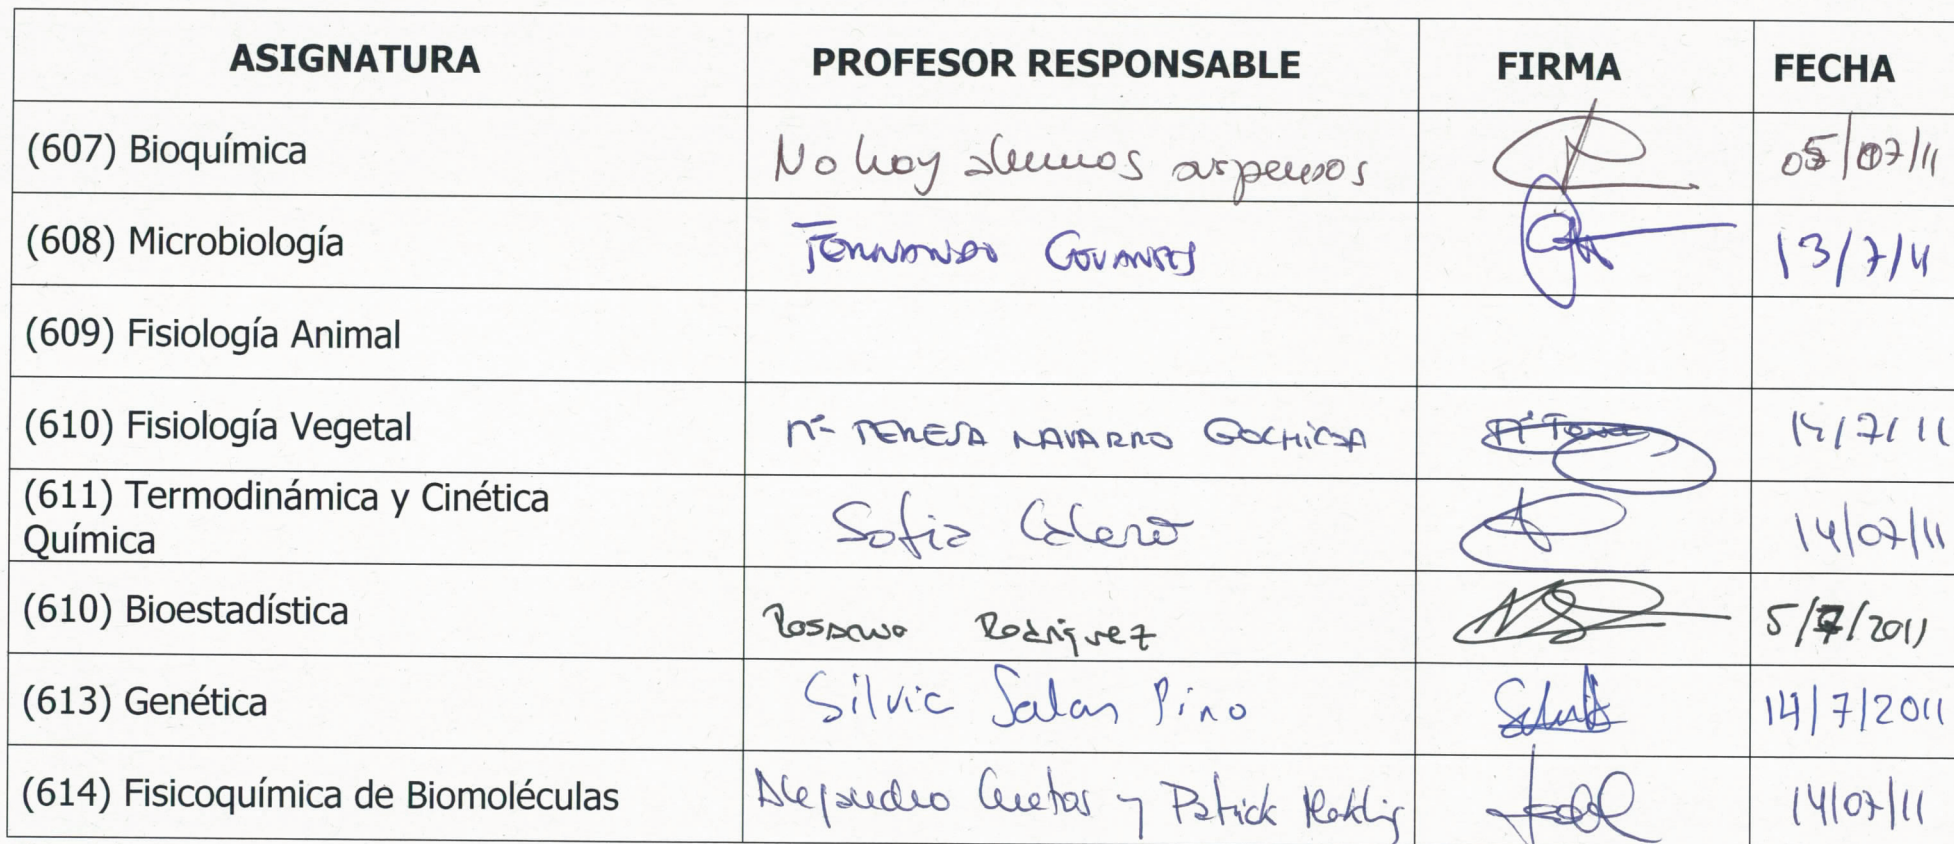 ASIGNATURA PROFESOR RESPONSABLE FIRMA FECHA
(607) Bioquímica No hay alumnos suspensos 05/07/11
(608) Microbiología FERNANDO GOVANTES 13/7/11
(609) Fisiología Animal
(610) Fisiología Vegetal Mª TERESA NAVARRO GOCHICOA Mª Teresa 14/7/11
(611) Termodinámica y Cinética
Química Sofia Calero 14/07/11
(610) Bioestadística Rosario Rodríguez 5/7/2011
(613) Genética Silvia Salas Pino 14/7/2011
(614) Fisicoquímica de Biomoléculas Alejandro Cuetos y Patrick 14/07/11